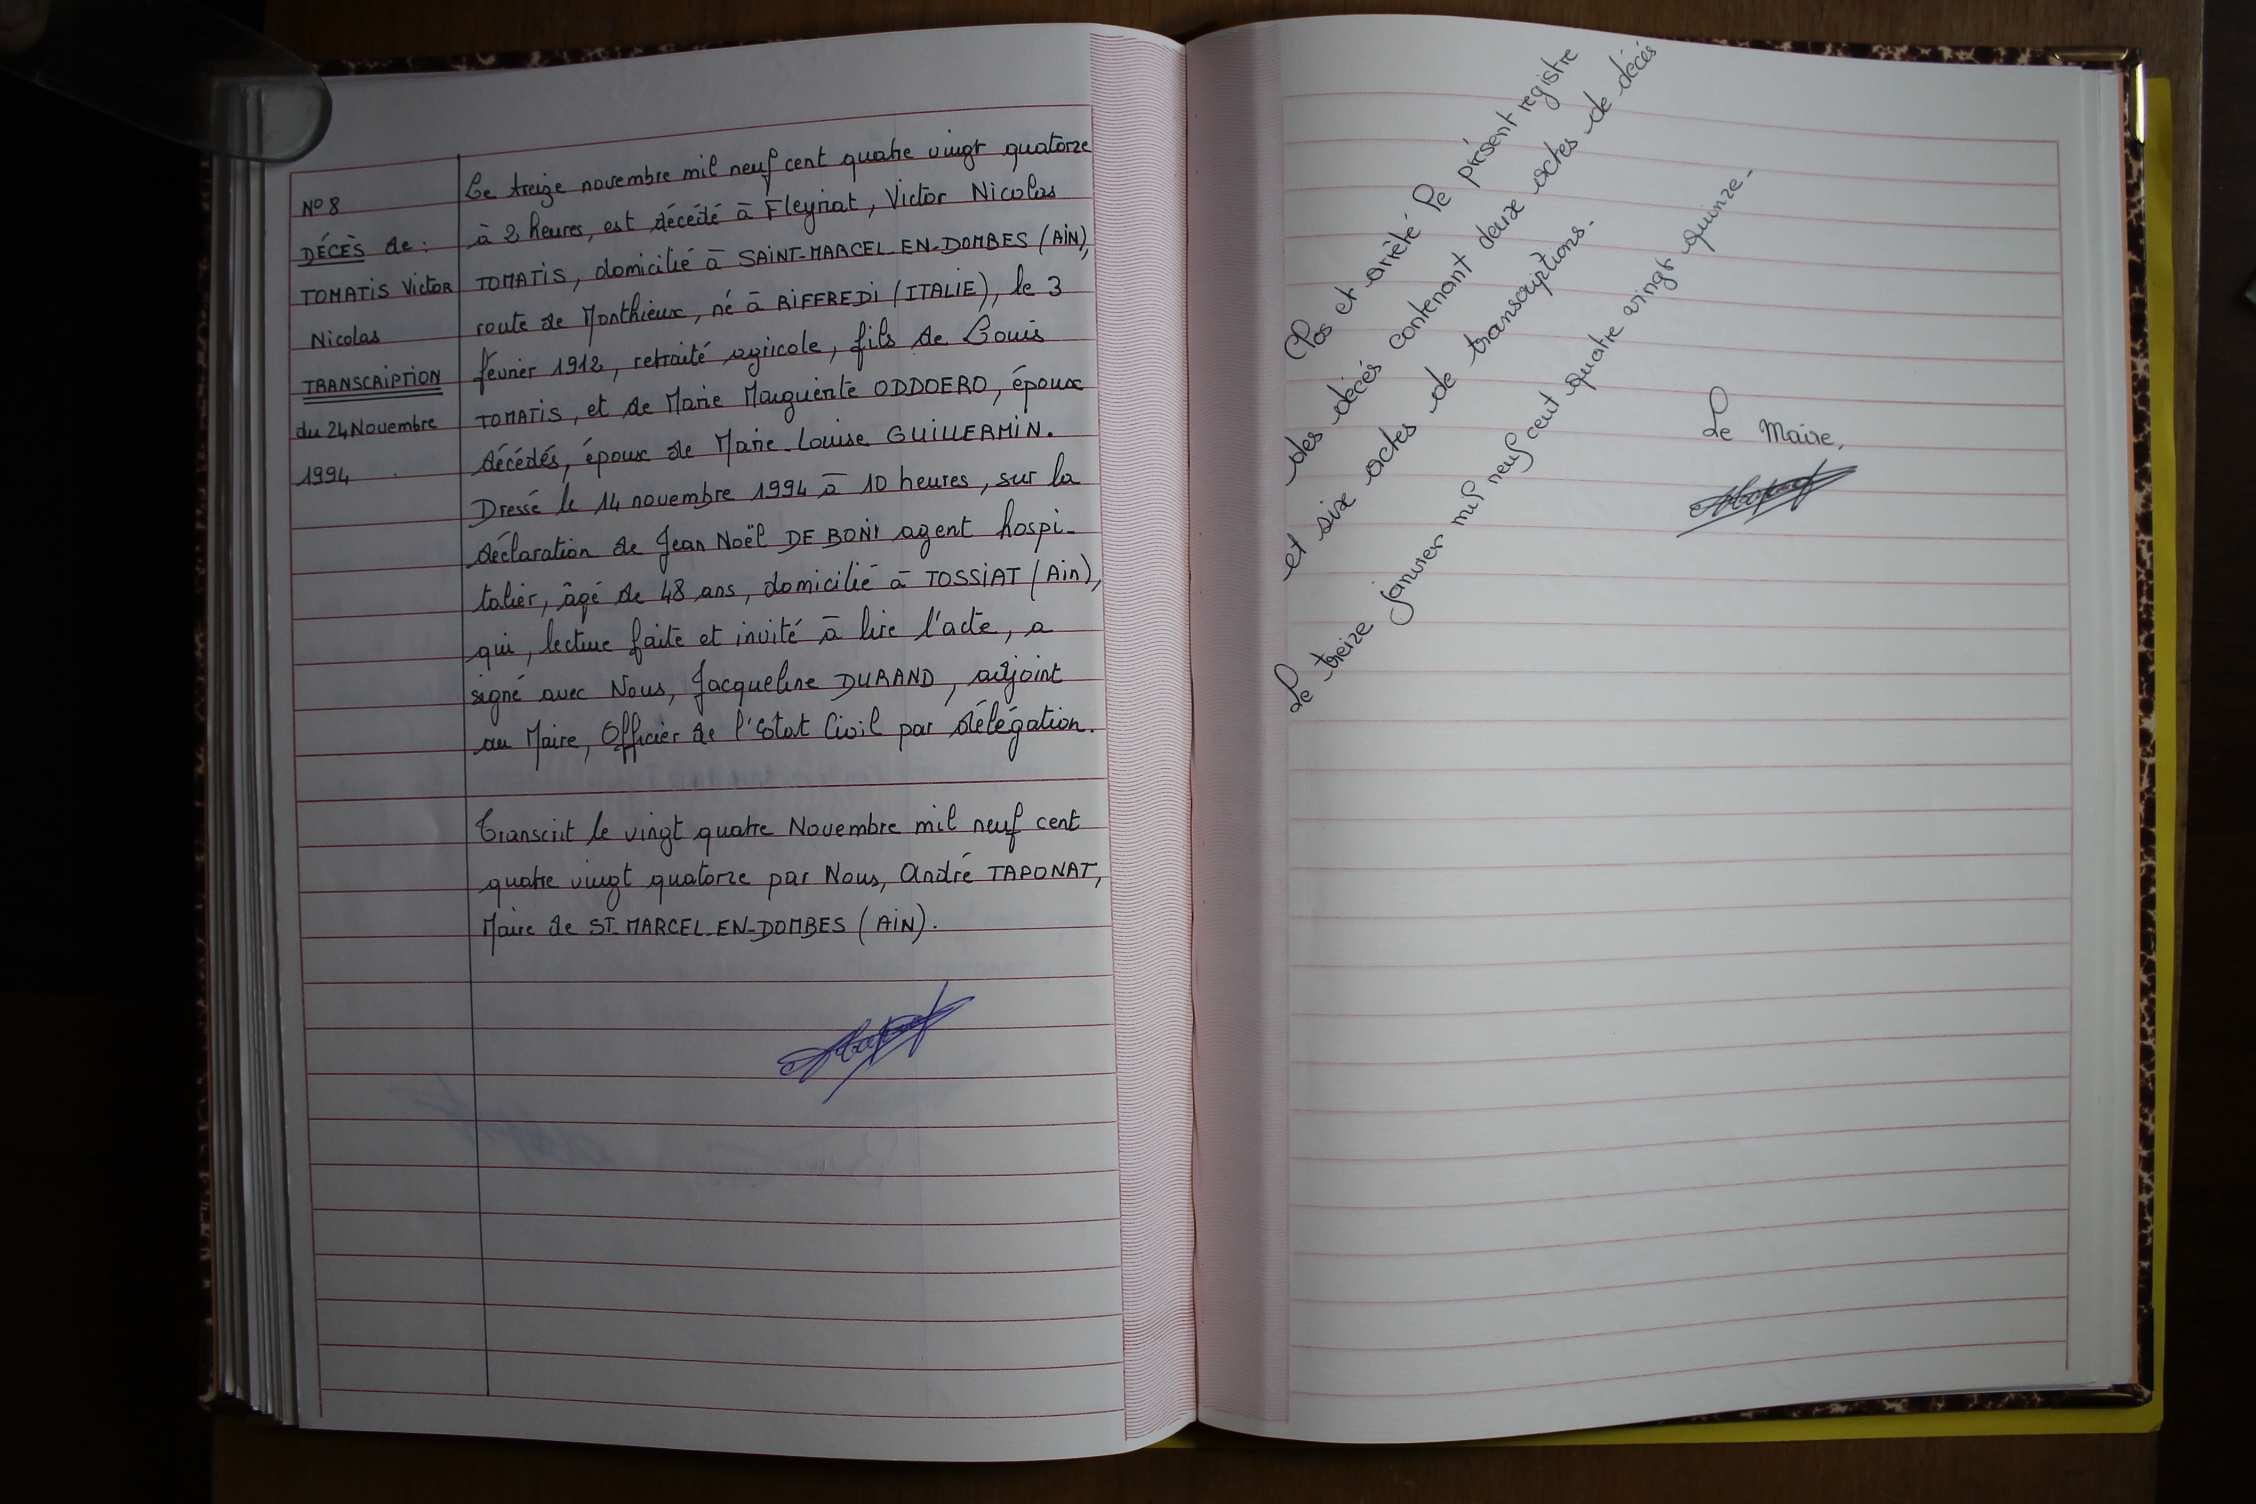 N° 8
DÉCÈS de :
TOMATIS Victor
Nicolas
TRANSCRIPTION
du 24 Novembre
1994
Le treize novembre mil neuf cent quatre vingt quatorze
à 2 heures, est décédé à Fleyriat, Victor Nicolas
TOMATIS, domicilié à SAINT-MARCEL-EN-DOMBES (AIN),
route de Monthieux, né à RIFFREDI (ITALIE), le 3
février 1912, retraité agricole, fils de Louis
TOMATIS, et de Marie Marguerite ODDOERO, époux
décédés, époux de Marie-Louise GUILLERMIN.
Dressé le 14 novembre 1994 à 10 heures, sur la
déclaration de Jean Noël DE BONI agent hospi-
talier, âgé de 48 ans, domicilié à TOSSIAT (Ain),
qui, lecture faite et invité à lire l'acte, a
signé avec Nous, Jacqueline DURAND, adjoint
au Maire, Officier de l'Etat Civil par délégation.
Transcrit le vingt quatre Novembre mil neuf cent
quatre vingt quatorze par Nous, André TAPONAT,
Maire de ST-MARCEL-EN-DOMBES (AIN).
Clos et arrêté le présent registre
des décés contenant deux actes de décés
et six actes de transcriptions.
Le treize janvier mil neuf cent quatre vingt quinze.
Le Maire,